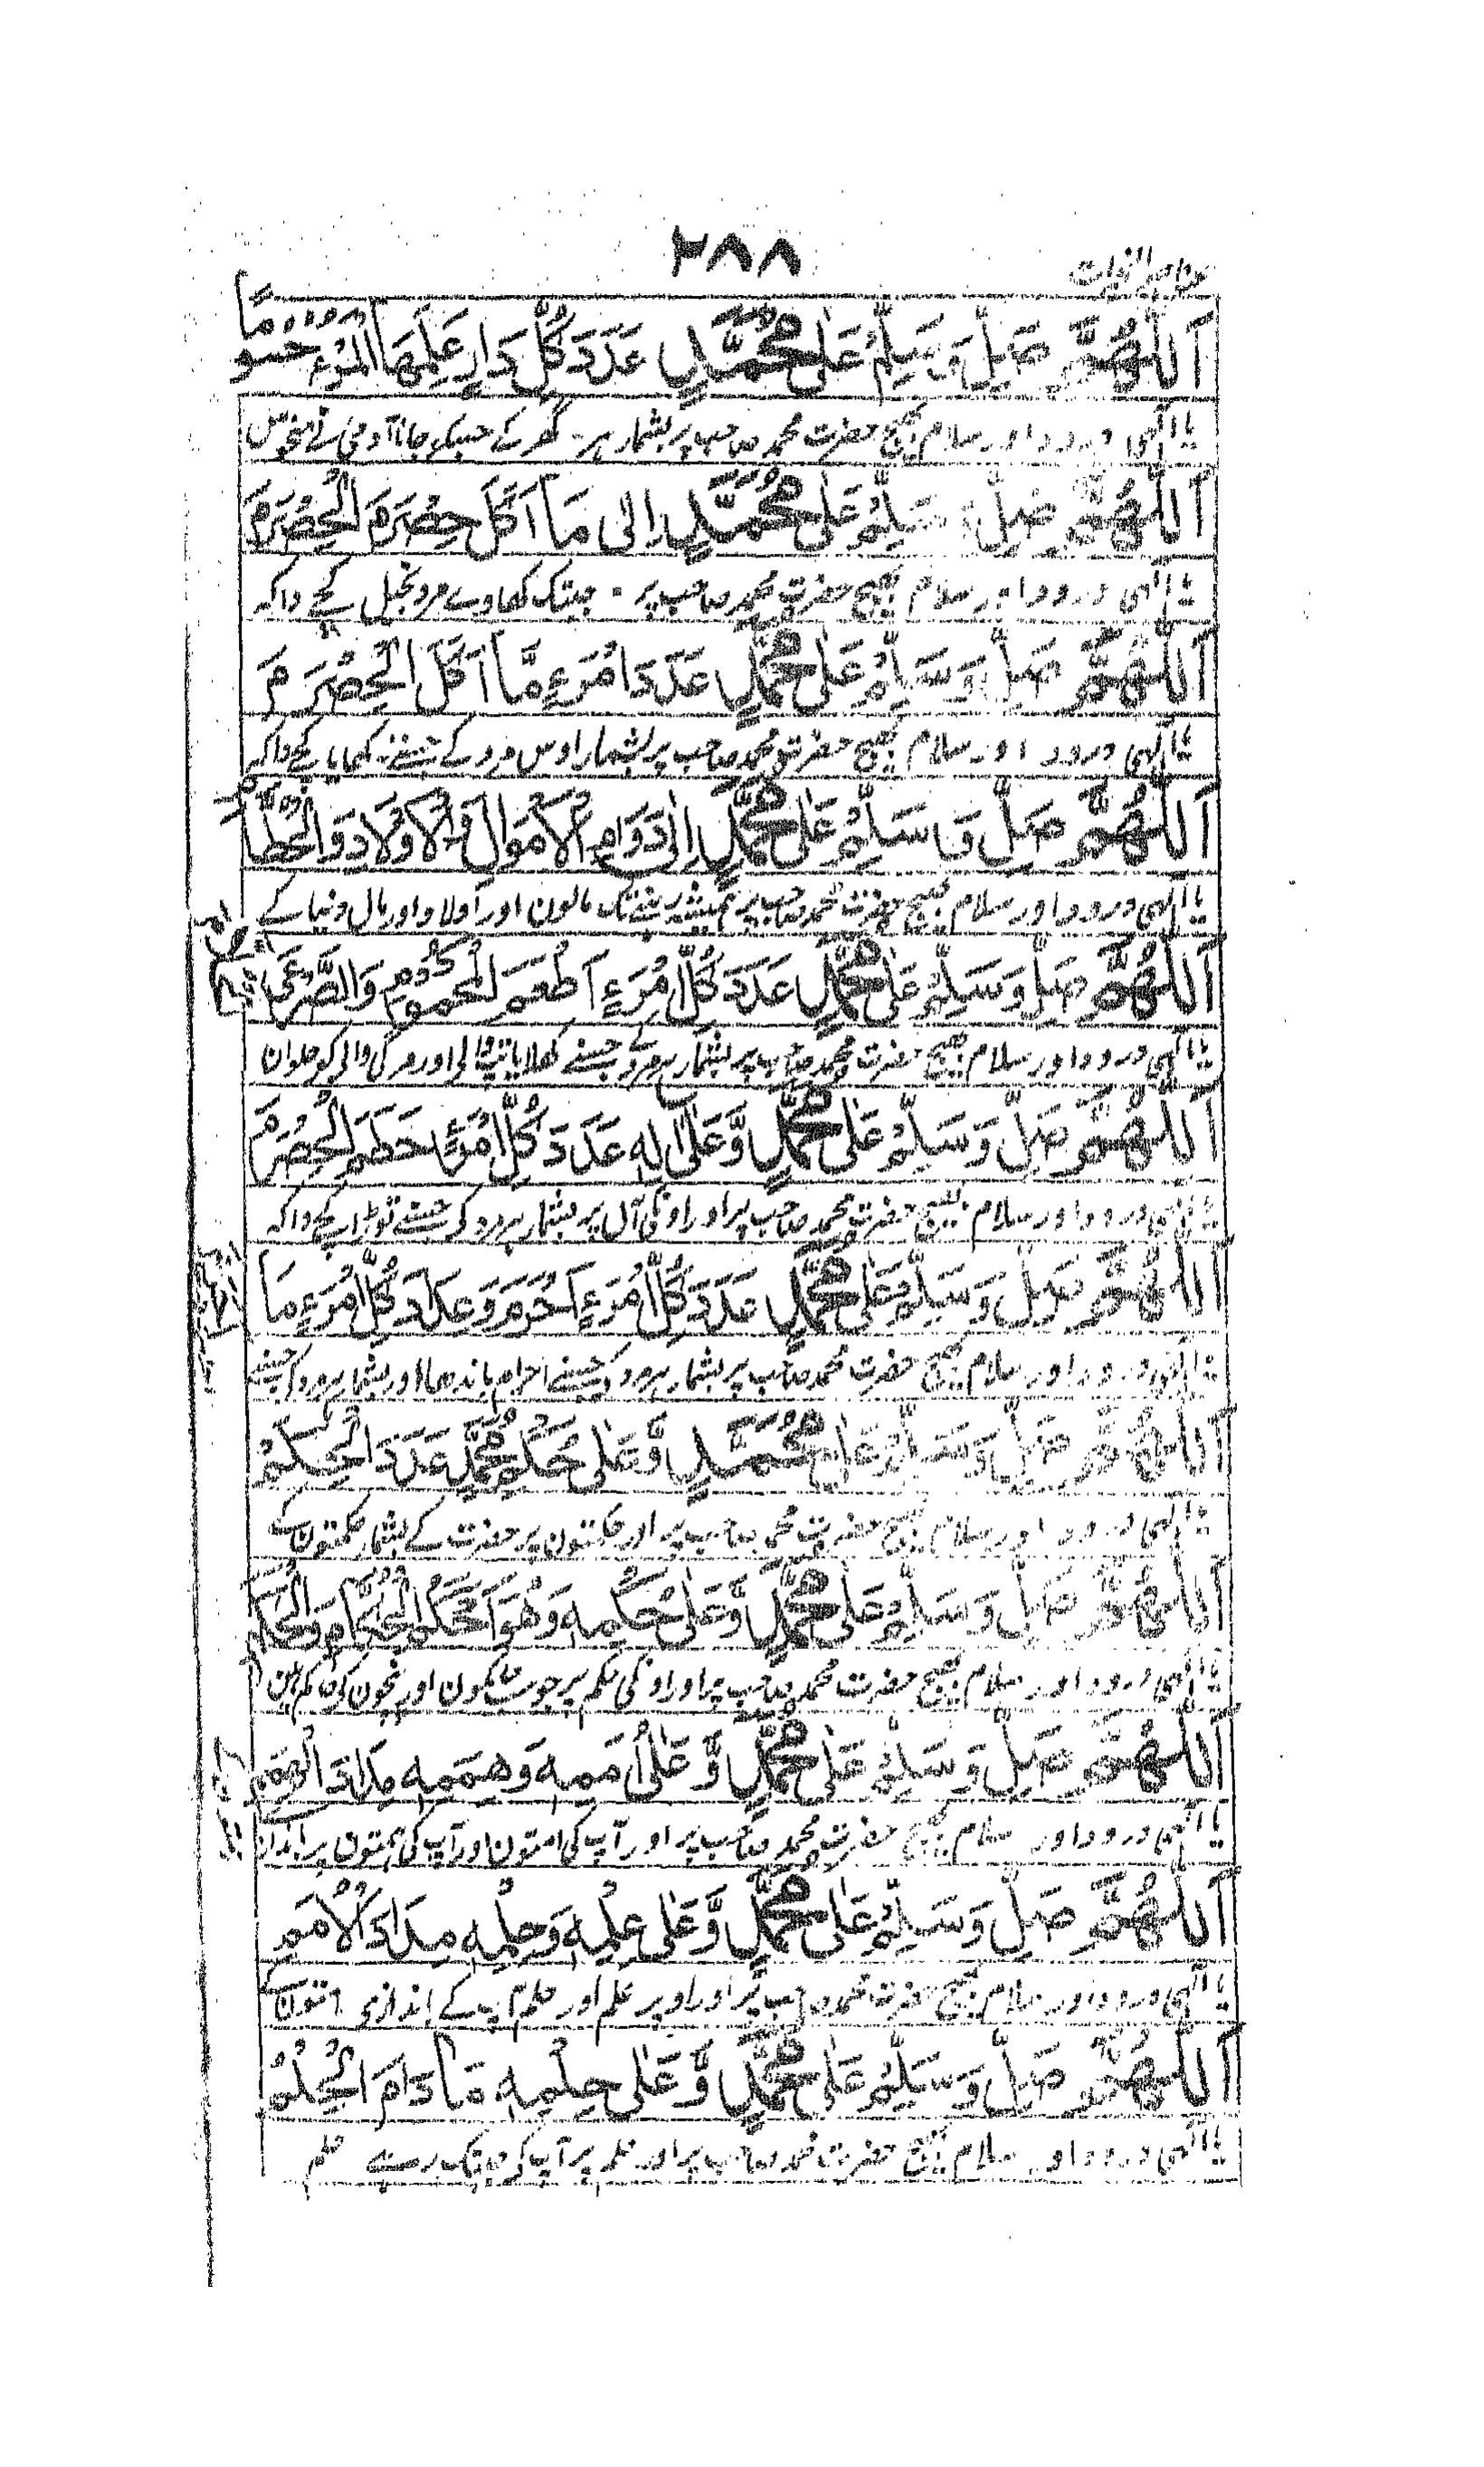 ٢٨٨
اَللّٰهُمَّ صَلِّ وَسَلِّمْ عَلٰى مُحَمَّدٍ عَدَدَ كُلِّ دَارٍ عَلِمَهَا الْمَرْءُ
یا الٰہی درود اور سلام بھیج حضرت محمد صاحب پر بشمار ہر گھر کے جسکو جانا آدمی نے منحوس
اَللّٰهُمَّ صَلِّ وَسَلِّمْ عَلٰى مُحَمَّدٍ اِلٰى مَا اَكَلَ حِصْرَمَ الْحِصْرَمَ
یا الٰہی درود اور سلام بھیج حضرت محمد صاحب پر جبتک کھاوے مرد بخیل کچے داکہ
اَللّٰهُمَّ صَلِّ وَسَلِّمْ عَلٰى مُحَمَّدٍ عَدَدَ امْرَءٍ مَّا اَكَلَ الْحِصْرَمَ
یا الٰہی درود اور سلام بھیج حضرت محمد صاحب پر بشمار اوس مرد کے جسنے نہ کھایا کچے داکہ
اَللّٰهُمَّ صَلِّ وَسَلِّمْ عَلٰى مُحَمَّدٍ اِلٰى دَوَامِ الْاَمْوَالِ وَالْاَوْلَادِ وَالْحُطَامِ
یا الٰہی درود اور سلام بھیج حضرت محمد صاحب پر ہمیشہ رہنے تک مالون اور اولاد اور مال دنیا کے
اَللّٰهُمَّ صَلِّ وَسَلِّمْ عَلٰى مُحَمَّدٍ عَدَدَ كُلِّ امْرَءٍ اَطْعَمَ الْمَحْمُوْمَ وَالصَّرْعٰى
یا الٰہی درود اور سلام بھیج حضرت محمد صاحب پر بشمار ہر مرد کے جسنے کھلایا تپ والی اور مرگی والی کو حلوان
اَللّٰهُمَّ صَلِّ وَسَلِّمْ عَلٰى مُحَمَّدٍ وَّعَلٰى اٰلِهٖ عَدَدَ كُلِّ امْرَءٍ حَطَمَ الْحِصْرَمَ
یا الٰہی درود اور سلام بھیج حضرت محمد صاحب پر اور اونکی آل پر بشمار ہر مرد کی جسنے توڑا کچے داکہ
اَللّٰهُمَّ صَلِّ وَسَلِّمْ عَلٰى مُحَمَّدٍ عَدَدَ كُلِّ امْرَءٍ اَحْرَمَ وَعَدَدَ كُلِّ امْرَءٍ مَا
یا الٰہی درود اور سلام بھیج حضرت محمد صاحب پر بشمار ہر مرد کے جسنے احرام باندھا اور بشمار ہر مرد کے جسنے
اَللّٰهُمَّ صَلِّ وَسَلِّمْ عَلٰى مُحَمَّدٍ وَّعَلٰى حِكَمِ مُحَمَّدٍ عَدَدَ الْحِكَمِ
یا الٰہی درود اور سلام بھیج حضرت محمد صاحب پر اور حکمتون پر حضرت کے بشمار حکمتون کے
اَللّٰهُمَّ صَلِّ وَسَلِّمْ عَلٰى مُحَمَّدٍ وَّعَلٰى حُكْمِهٖ وَهُوَ
یا الٰہی درود اور سلام بھیج حضرت محمد صاحب پر اور اونکی حکم پر جو
اَللّٰهُمَّ صَلِّ وَسَلِّمْ عَلٰى مُحَمَّدٍ وَّعَلٰى اُمَمِهٖ وَهِمَمِهٖ مِدَادَ الْهِمَمِ
یا الٰہی درود اور سلام بھیج حضرت محمد صاحب پر اور آپ کی امتون اور آپ کی ہمتون پر
اَللّٰهُمَّ صَلِّ وَسَلِّمْ عَلٰى مُحَمَّدٍ وَّعَلٰى عِلْمِهٖ وَحِلْمِهٖ مِدَادَ الْاُمَمِ
یا الٰہی درود اور سلام بھیج حضرت محمد صاحب پر اور اوپر علم اور حلم آپ کے اندازی امتون کے
اَللّٰهُمَّ صَلِّ وَسَلِّمْ عَلٰى مُحَمَّدٍ وَّعَلٰى حِلْمِهٖ مَا دَامَ الْحِلْمُ
یا الٰہی درود اور سلام بھیج حضرت محمد صاحب پر اور حلم پر آپ کی جبتک رہے حلم